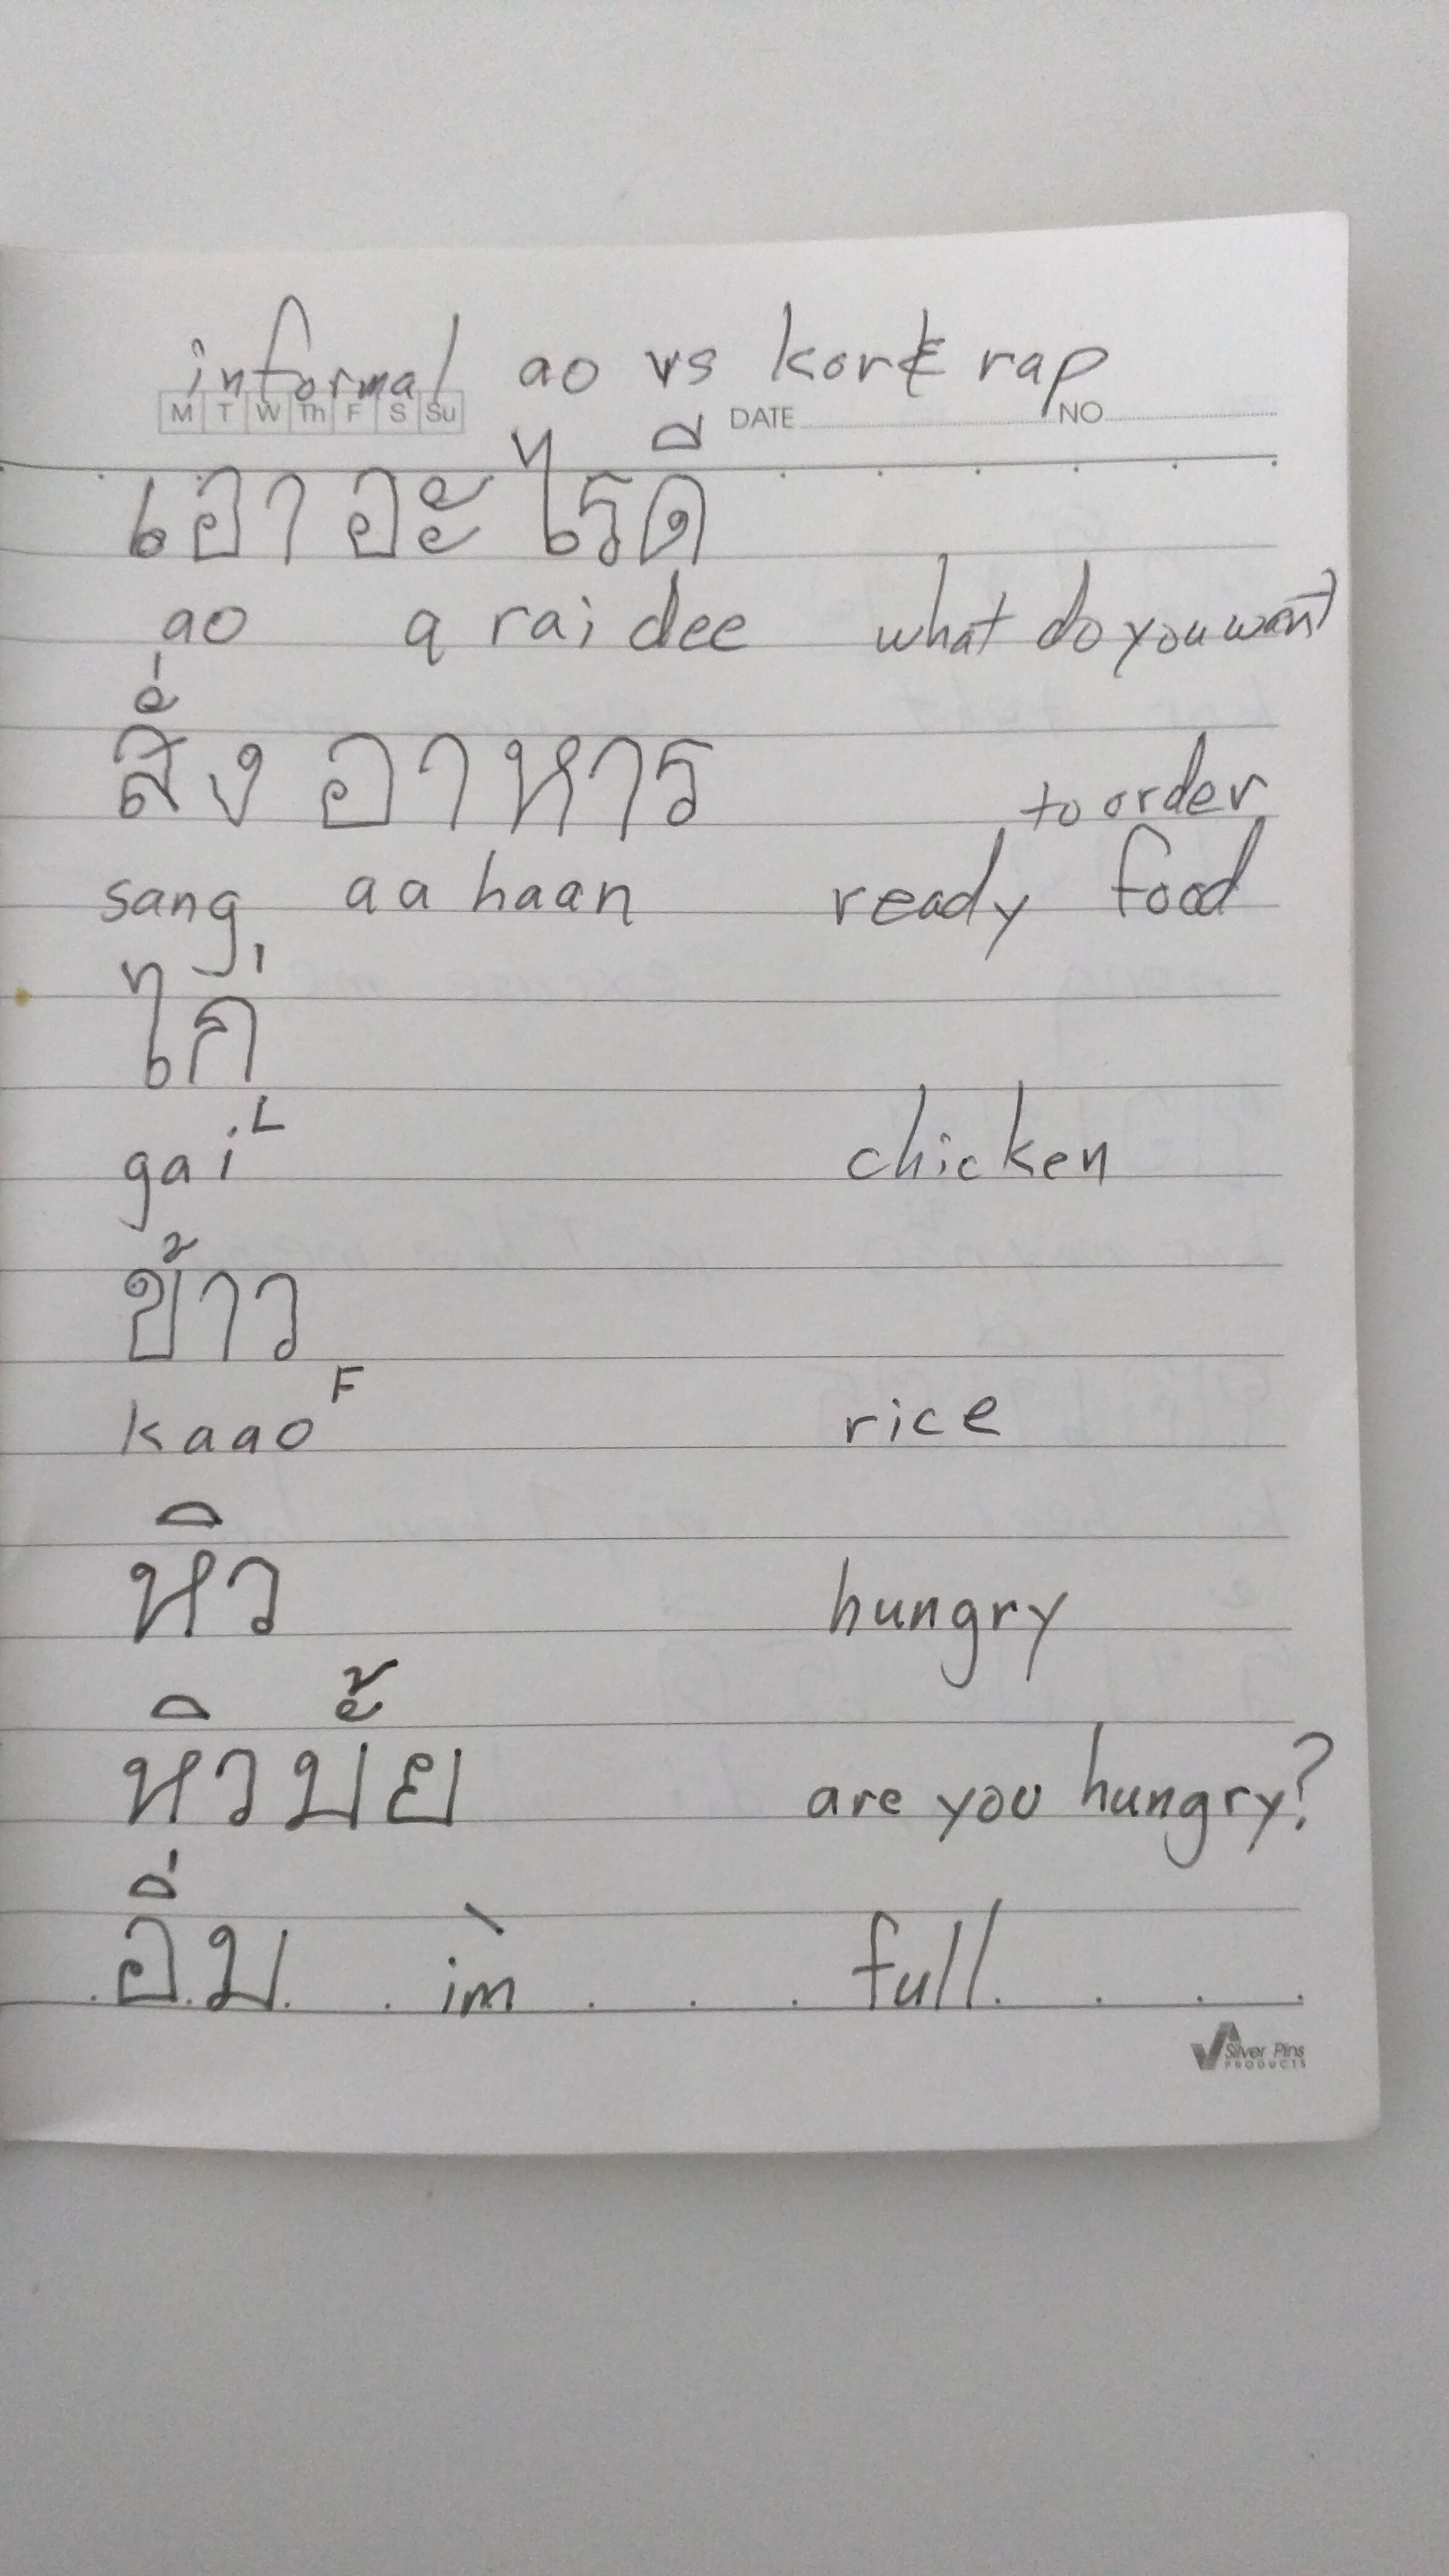 informal ao vs kor & rap
M T W Th F S Su DATE NO
เอา อะไรดี
ao a rai dee what do you want
สั่ง อาหาร to order
sang aa haan ready food
ไก่
gai L chicken
ข้าว
kaao F rice
หิว hungry
หิวบ้ย are you hungry?
อิ่ม im̀ full
Silver Pins
PRODUCTS